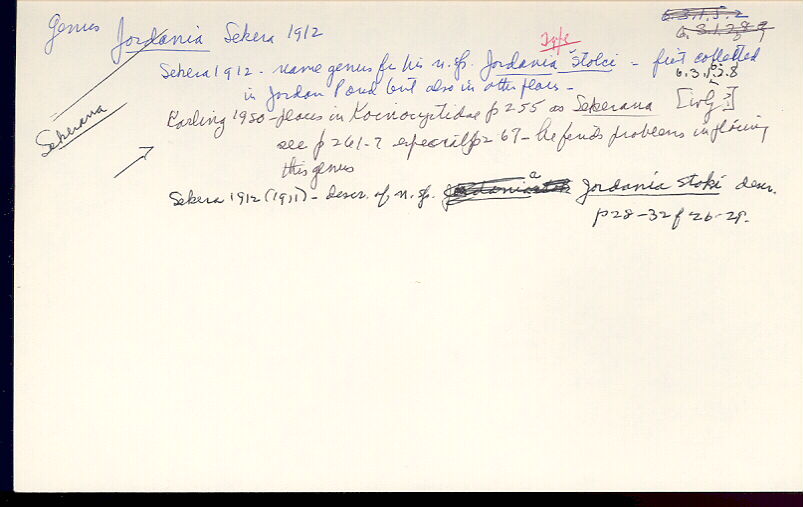 Genus Jordania Sekera 1912
6.3.1.5.2
6.3.1.2.8.9
Sekerana
type
Sekera 1912 - name genus for his n. sp. Jordania stolci - first collected
6.3.1.2.8
in Jordan Pond but also in other places -
Karling 1950 - places in Koinocystidae p 255 as Sekerana
see p 261-2 especially p 267 - he finds problems in placing
this genus
Sekera 1912 (1911) - descr. of n. sp. Jordania stolci descr.
p 28-32 f 26-29.